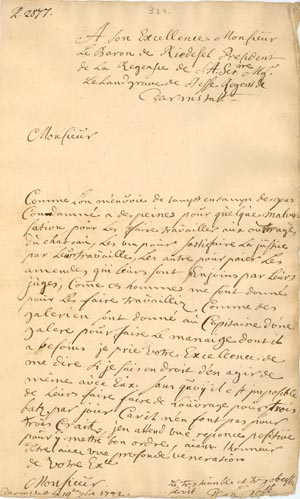 A Son Excellence Monsieur
Le Baron de Riedesel President
de la Regence de S. A. Ser.me Mgr
Le Landgrave de Hesse Regent de
Darmstatt
Monsieur
Comme l'on m'envoie de temps en temps des gens
Condamné a des peines pour quelque malver
sation pour les faire travailler aux ouvrages
du chateau, les un pour satisfaire la justice
par leurs travailles, les autre pour paier les
amendes qui leurs sont enjoins par leurs
juges, Come ces hommes me sont donné
pour les faire travailler Comme des
galerien sont donné au Capitaine d'une
galere pour faire le menaige dont il
a besoins je prie Votre Excellence de
me dire si je suis en droit d'en agir de
meme avec Eux, sans quoi il est impossible
de leurs faire faire de l'ouvrage pour trois
batz par jour Car ils n'en font pas pour
trois Craitz, j'en attend une reponce positive
pour y mettre bon ordre, aiant l'honneur
d'etre avec une profonde veneration
de Votre Exce
Monsieur
Le tres humble et tres obeissant